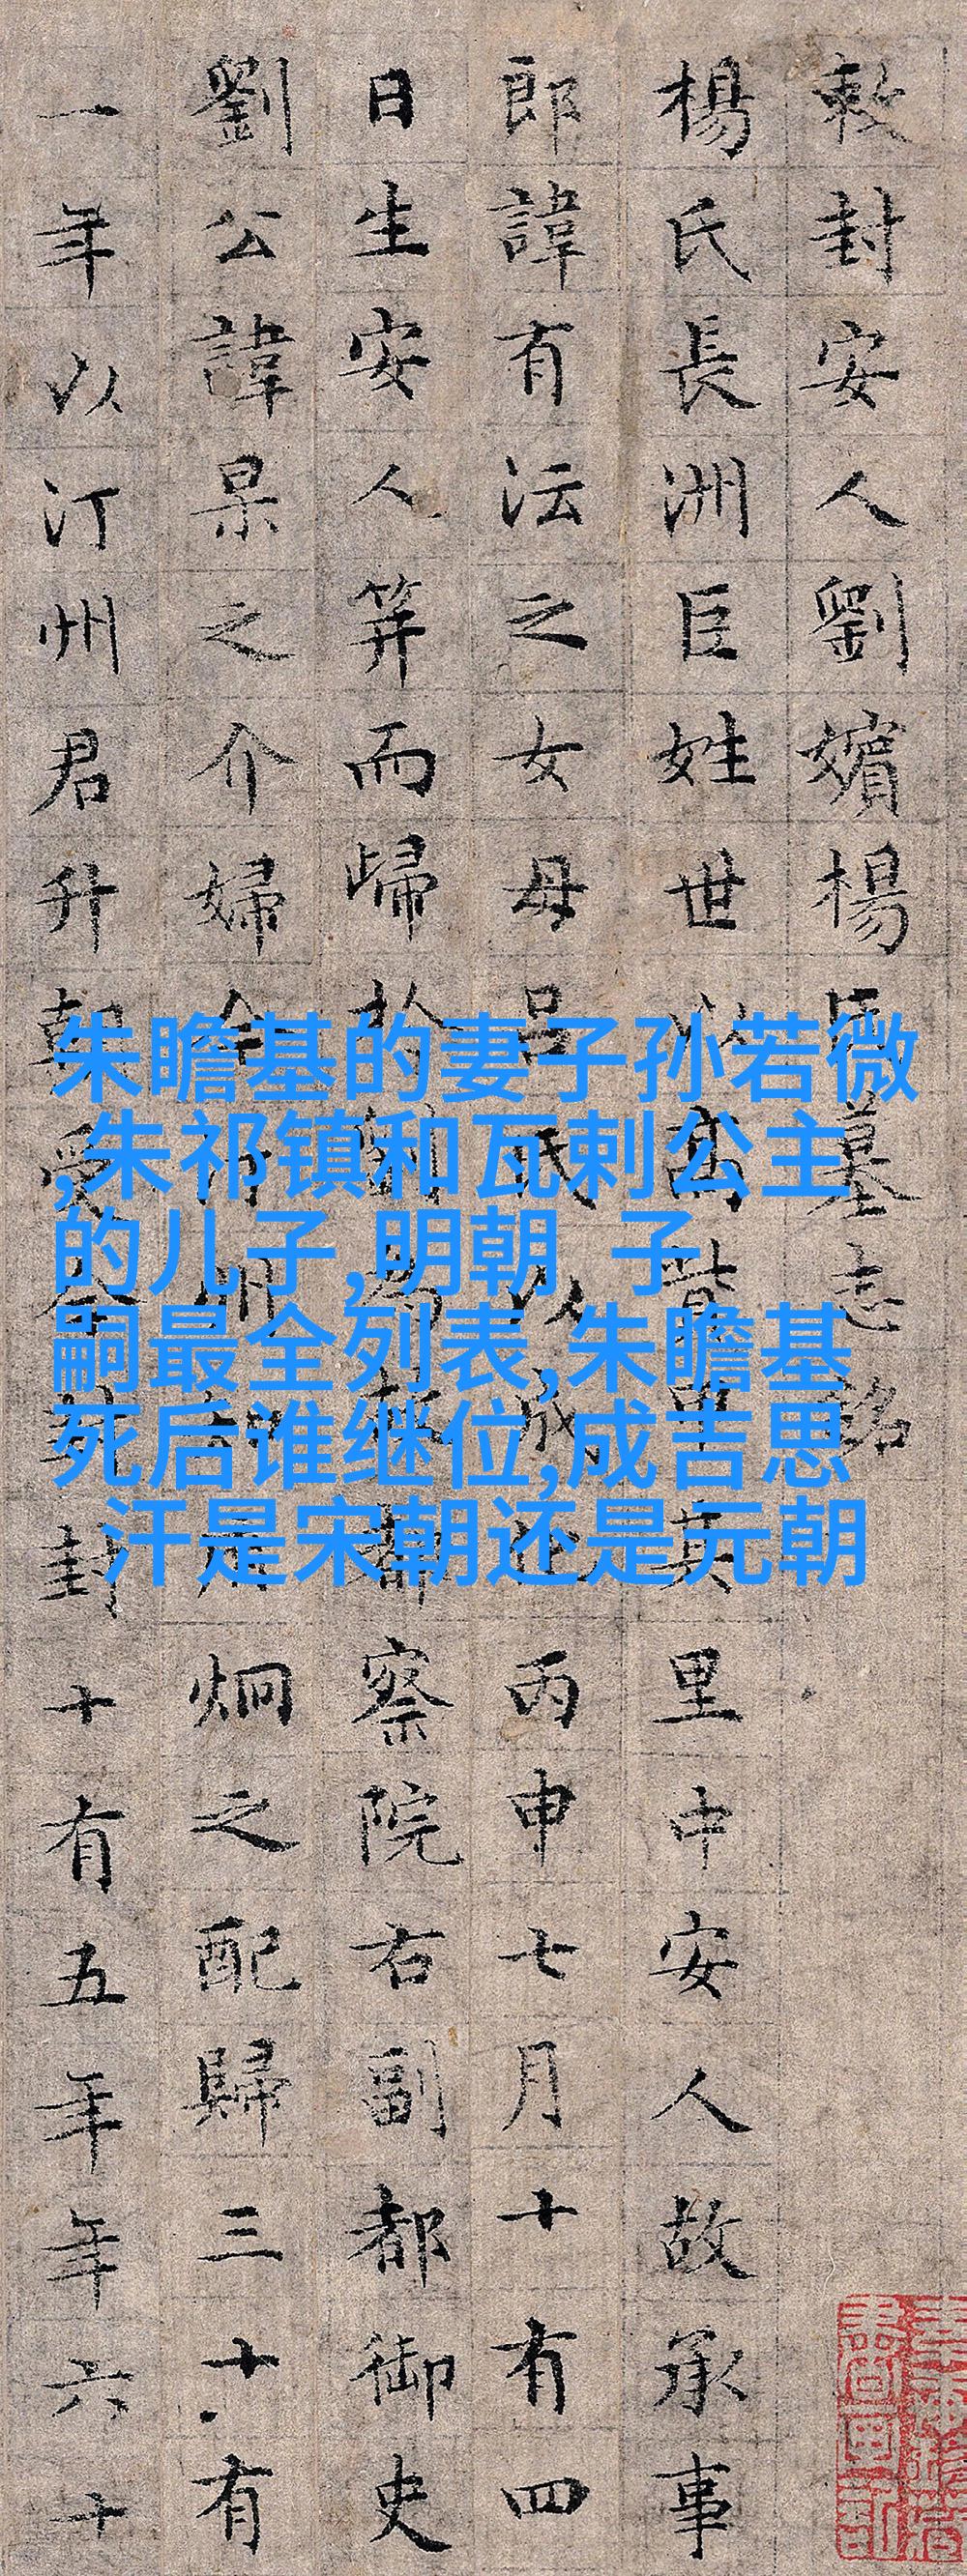 敕封安人劉嬪楊氏墓志銘
楊氏長洲巨姓世以高貲甲其里中安人故承事
郎諱有沄之女母呂氏以成化丙申七月十有四
日生安人笄而歸於劉為都察院右副都御史
劉公諱杲之介婦今炯之配歸三十有
一年以汀州君升朝受今封封十有五年年六十
朱瞻基的妻子孙若微
,朱祁镇和瓦剌公主
的儿子,明朝 子
嗣最全列表,朱瞻基
死后谁继位,成吉思
汗是宋朝还是元朝